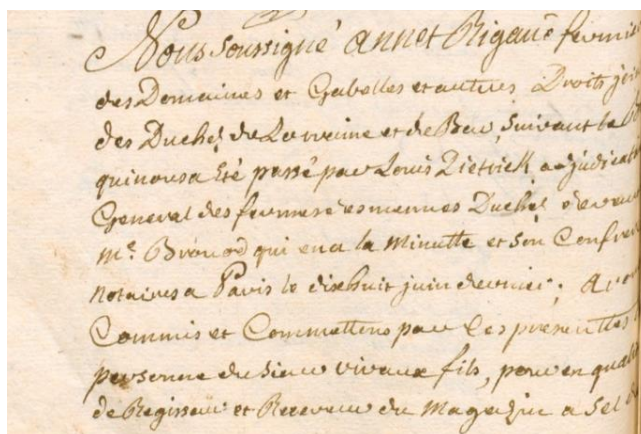 Nous soussigné annet Rigault
des Domaines et Gabelles et autres Droits
des Duchés de Lorraine et de Bar, Suivant le
qui nous a Eté passé par Louis Dietrick adjudicat
General des fermes desmemes Duchés devant
me. Bronod qui en a la Minutte et son Confrer
notaires a Paris le dixhuit juin dernier;
Commis et Commettons par Ces presentes
personne du Sieur vivaux fils, pour en qualit
de Regisseur et Receveur du Magazin a Sel